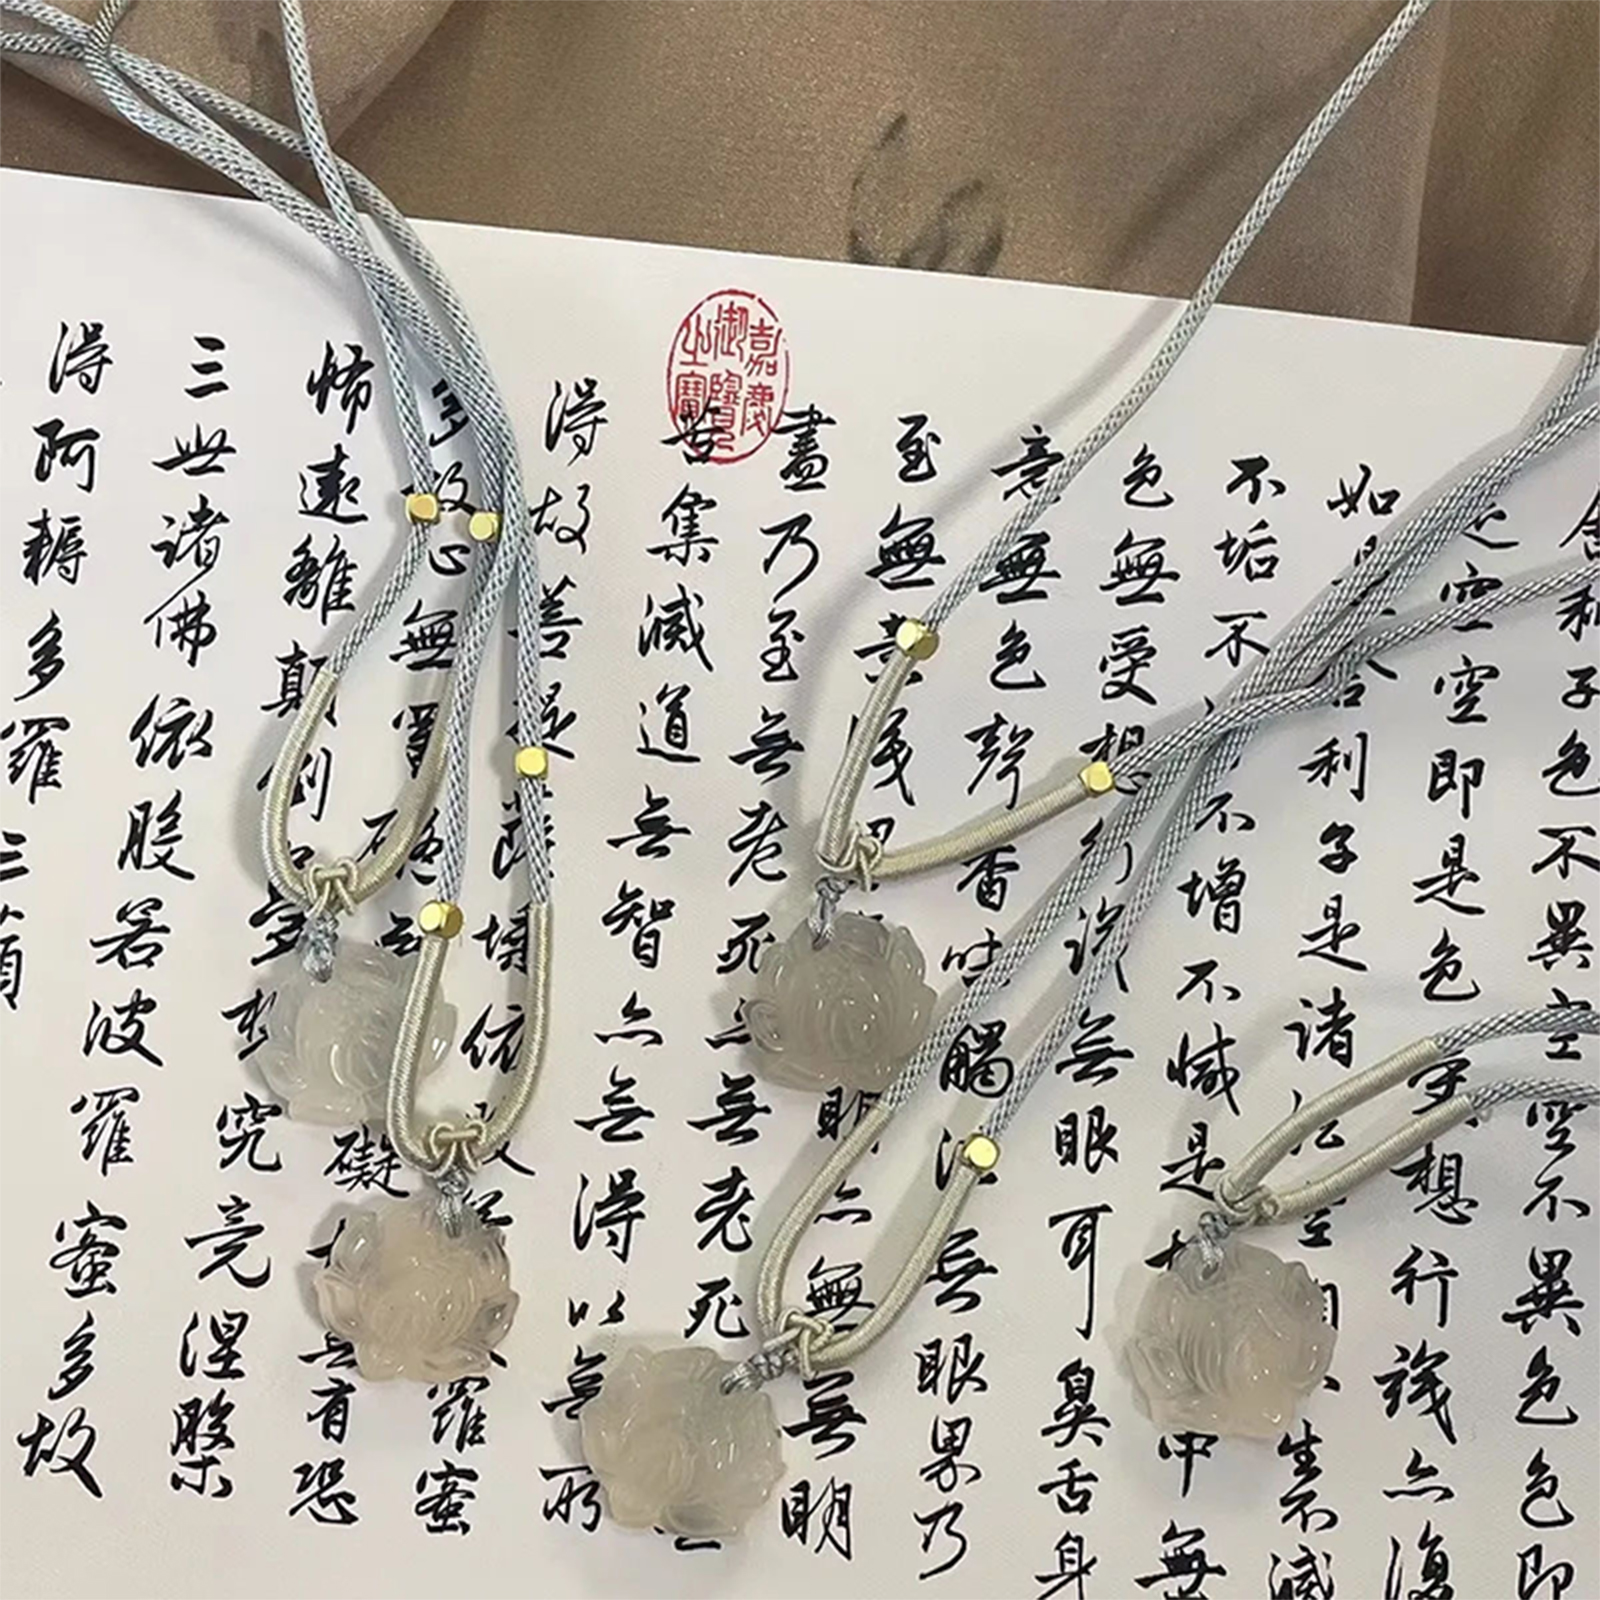 嘉慶
御覽
之寶
舍利子色不異空空不異色色即
是空空即是色想行識亦復
如是舍利子是諸法空相生不滅
不垢不不增不減是中無
色無受想行識無眼耳鼻舌身
意無色聲香味觸法無眼界乃
至無意識界明亦無無明
盡乃至無老死亦無老死
苦集滅道無智亦無得以無所
得故菩提薩埵依般羅蜜
多故心無罣礙礙無有恐
怖遠離顛倒夢想究竟涅槃
三世諸佛依般若波羅蜜多故
得阿耨多羅三藐